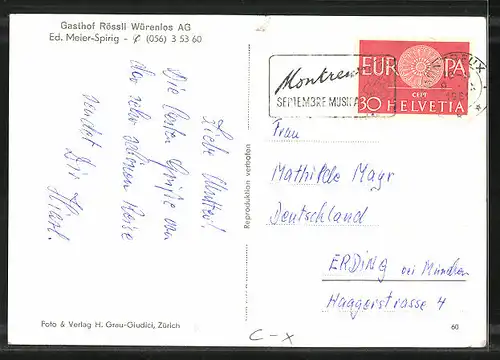 Gasthof Rössli Würenlos AG
Ed. Meier-Spirig - (056) 3 53 60
Liebe Mutter!
Die besten Grüße von
der sehr schönen Reise
sendet Dir
Reproduktion verboten
Foto & Verlag H. Grau-Giudici, Zürich
Montreux
SEPTEMBRE MUSICAL
EUROPA
CEPT
30 HELVETIA
Frau
Mathilde Mayr
Deutschland
ERDING bei München
Haagerstrasse 4
C-X
60